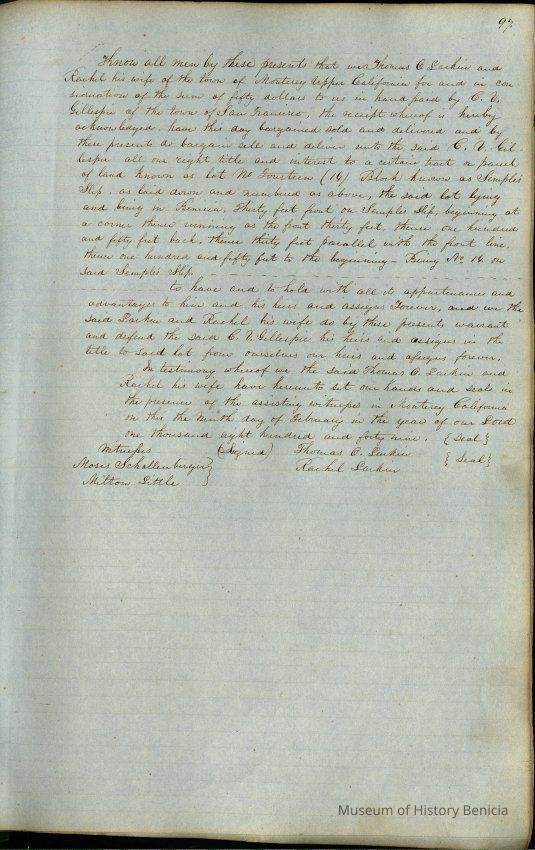 97
Know all men by these presents that we Thomas O. Larkin and
Rachel his wife of the town of Monterey Upper California for and in con
sideration of the sum of fifty dollars to us in hand paid by C. V.
Gillespie of the town of San Francisco, the receipt whereof is hereby
acknowledged, have this day bargained sold and delivered and by
these presents do bargain sell and deliver unto the said C. V. Gil-
lespie all our right title and interest to a certain tract a parcel
of land known as lot No Fourteen (14) Block known as Semple's
Slip, as laid down and numbered as above, the said lot lying
and being in Benicia, Thirty feet front on Semple's Slip, beginning at
a corner thence running as the front thirty feet, thence one hundred
and fifty feet back, thence thirty feet parallel with the front line,
thence one hundred and fifty feet to the beginning - Being No. 14 on
said Semple's Slip.
to have and to hold with all its appurtenances and
advantages to him and his heirs and assigns Forever, and we the
said Larkin and Rachel his wife do by these presents warrant
and defend the said C. V. Gillespie his heirs and assigns in the
title to said lot from ourselves our heirs and assigns forever.
In testimony whereof we the said Thomas O. Larkin and
Rachel his wife have hereunto set our hands and seals in
the presence of the assisting witnesses in Monterey California
on this the ninth day of February in the year of our Lord
one thousand eight hundred and forty nine. {Seal}
Witnesses (Signed) Thomas O. Larkin
Moses Schallenberger} Rachel Larkin {Seal}
Milton Little }
Museum of History Benicia